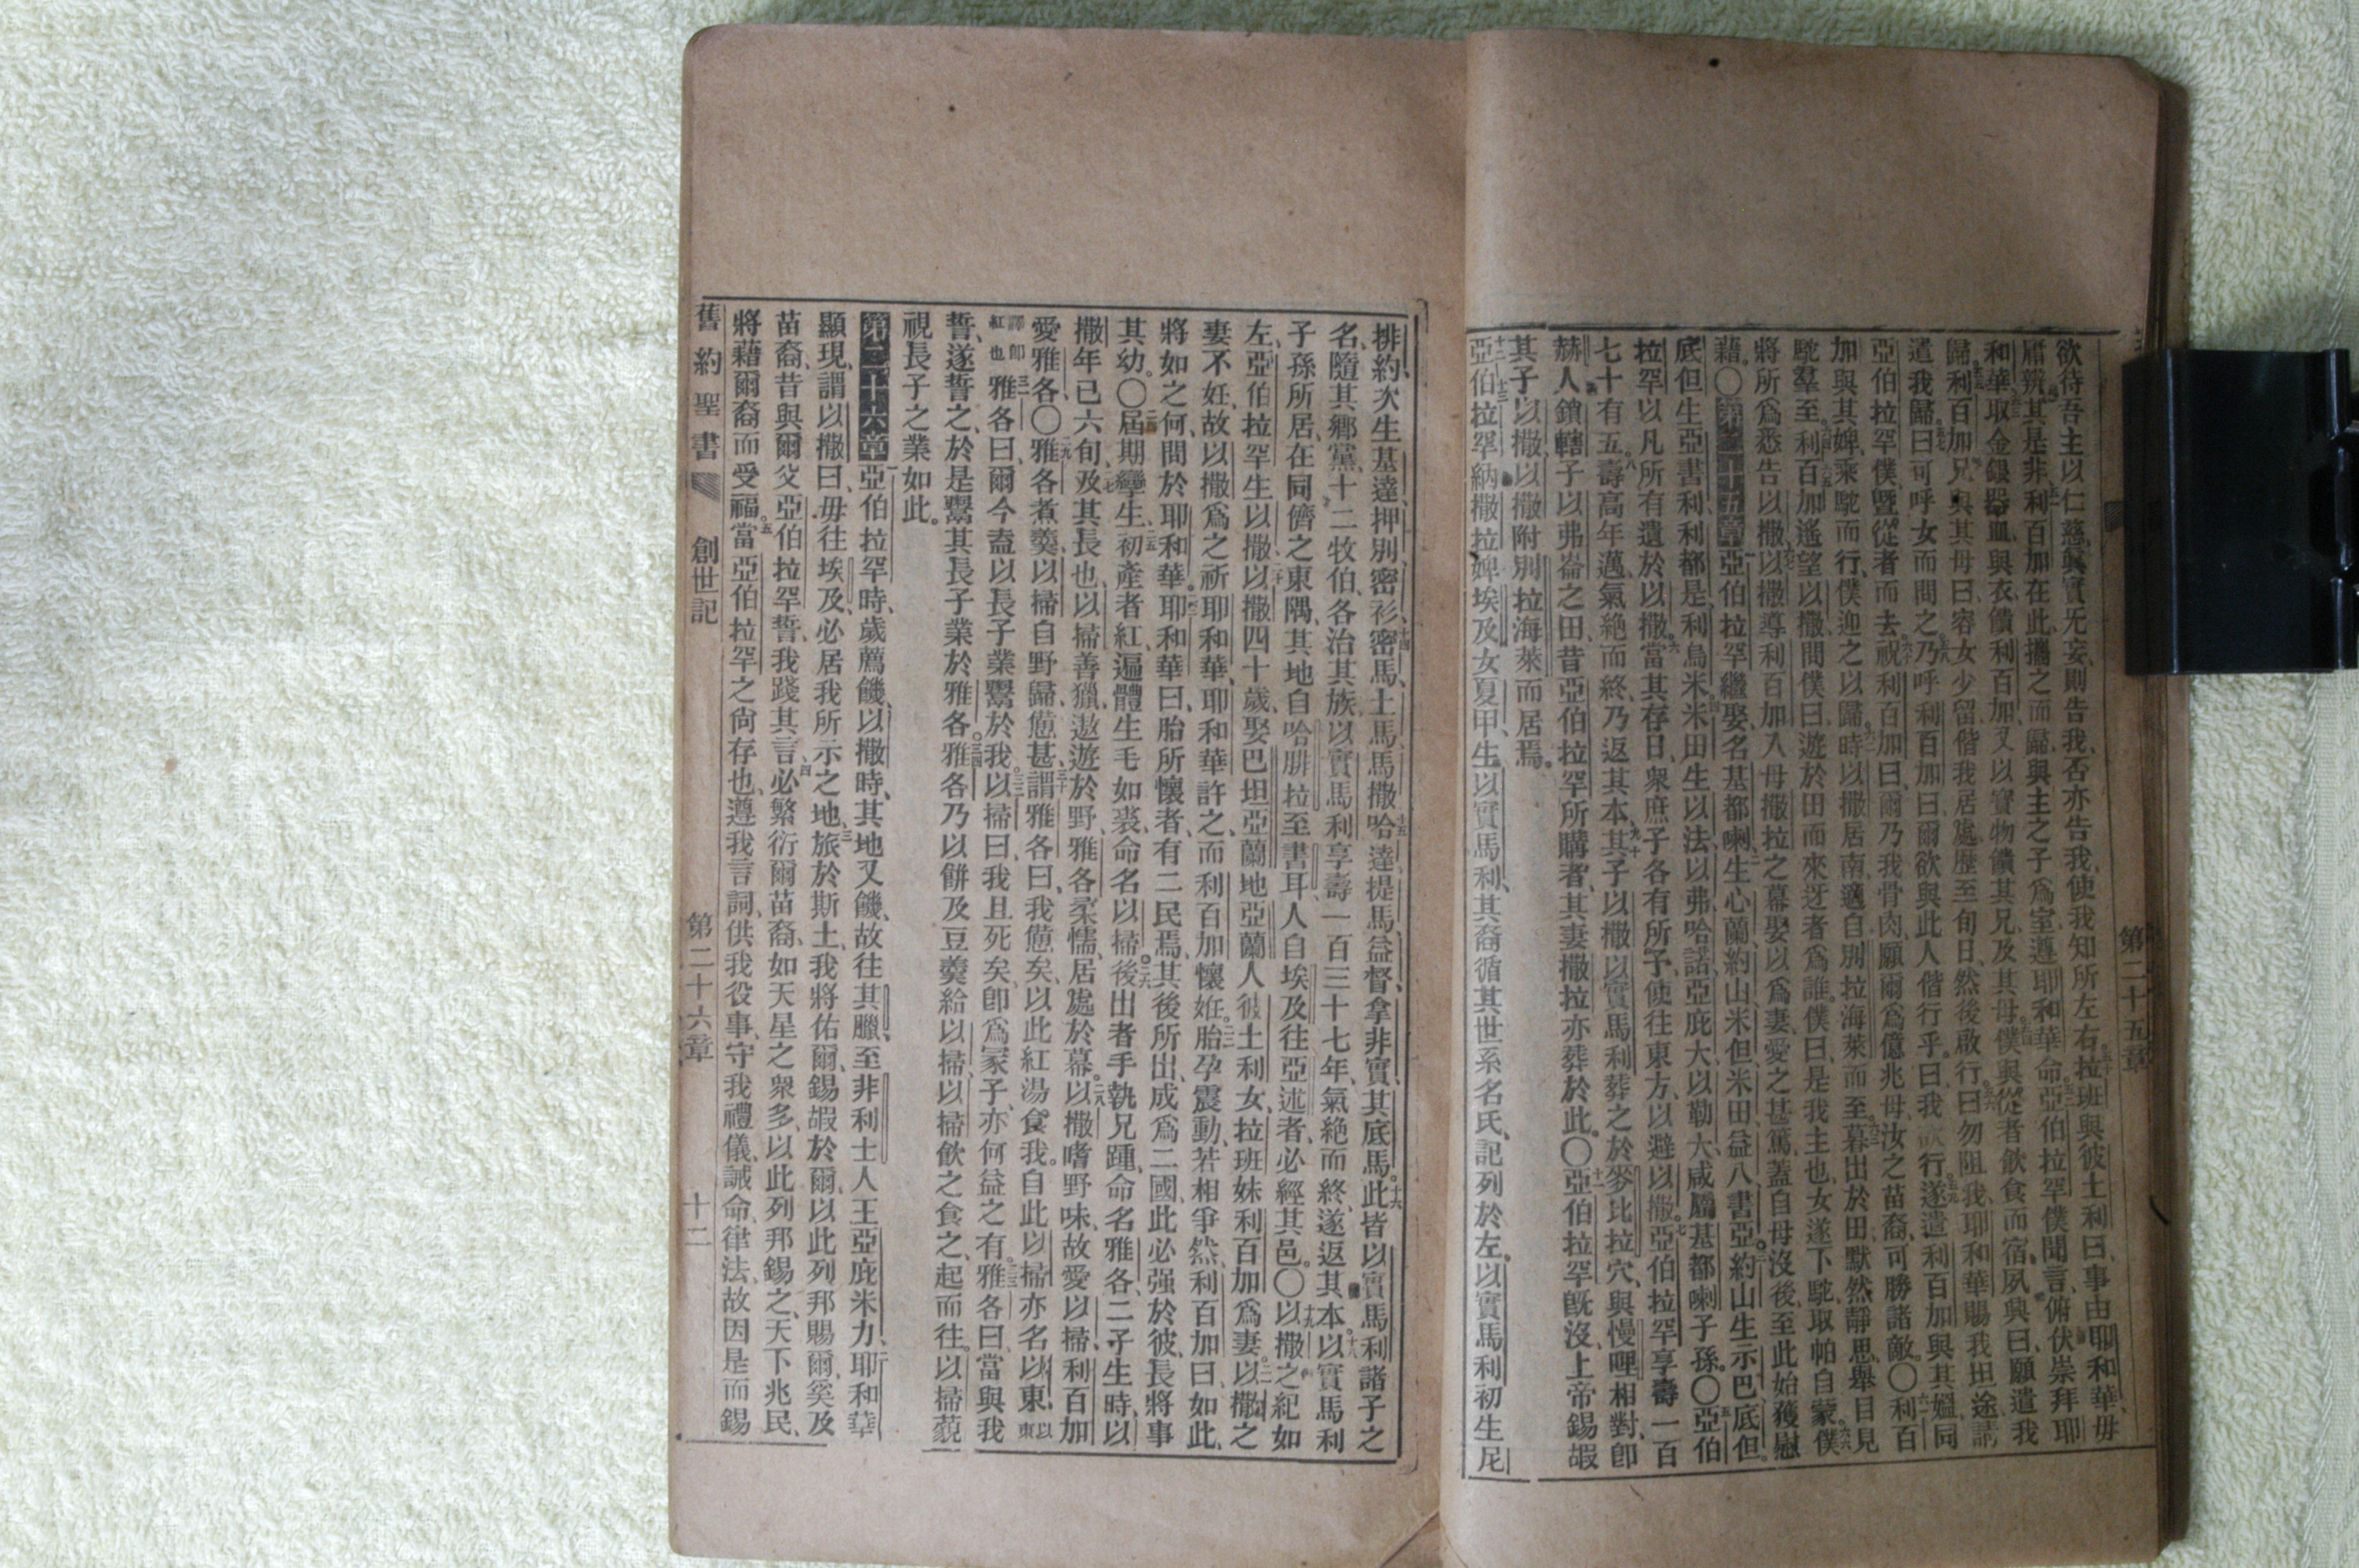 欲待吾主以仁慈、眞實无妄、則告我、否亦告我、使我知所左右。五十拉班與彼土利曰、事由耶和華、毋
庸辨其是非、五一利百加在此、攜之而歸、與主之子爲室、遵耶和華命。五二亞伯拉罕僕聞言、俯伏崇拜耶
和華、五三取金銀器皿、與衣饋利百加、又以寶物饋其兄及其母。五四僕與從者飲食而宿、夙興曰、願遣我
歸。五五利百加兄與其母曰、容女少留、偕我居處、歷至旬日、然後啟行。五六曰勿阻我、耶和華賜我坦途、請
遣我歸。五七曰可呼女而問之。五八乃呼利百加曰、爾欲與此人偕行乎。曰我欲行。五九遂遣利百加與其媼、同
亞伯拉罕僕、曁從者而去。六十祝利百加曰、爾乃我骨肉、願爾爲億兆母、汝之苗裔、可勝諸敵。〇六一利百
加與其婢、乘駝而行、僕迎之以歸。六二時以撒居南、適自別拉海萊而至。六三暮出於田、默然靜思、舉目見
駝羣至。六四利百加遙望以撒、六五問僕曰、遊於田而來迓者爲誰。僕曰、是我主也、女遂下駝、取帕自蒙。六六僕
將所爲悉告以撒、六七以撒導利百加、入母撒拉之幕、娶以爲妻、愛之甚篤、蓋自母沒後、至此始獲慰
藉。〇第二十五章 一亞伯拉罕繼娶、名基都喇、二生心蘭、約山、米但、米田、益八、書亞。三約山生示巴、底但。
底但生亞書利、利都是、利烏米。四米田生以法、以弗、哈諾、亞庇大、以勒大、咸屬基都喇子孫。〇五亞伯
拉罕以凡所有遺於以撒。六當其存日、衆庶子各有所予、使往東方、以避以撒。七亞伯拉罕享壽一百
七十有五、八壽高年邁、氣絕而終、乃返其本、九其子以撒以實馬利葬之於麥比拉穴、與慢哩相對、卽
赫人鎖轄子以弗崙之田、十昔亞伯拉罕所購者、其妻撒拉亦葬於此。〇十一亞伯拉罕旣沒、上帝錫嘏
其子以撒、以撒附別拉海萊而居焉。
十二亞伯拉罕納撒拉婢埃及女夏甲、生以實馬利、其裔循其世系名氏、記列於左、十三以實馬利初生尼
第二十五章
排約、次生基達、押別、密衫、十四密馬、土馬、馬撒、十五哈達、提馬、益督、拿非實、其底馬。十六此皆以實馬利諸子之
名、隨其鄉黨、十二牧伯、各治其族、十七以實馬利享壽一百三十七年、氣絕而終、遂返其本。十八以實馬利
子孫所居、在同儕之東隅、其地自哈腓拉至書耳、人自埃及往亞述者、必經其邑。〇十九以撒之紀如
左、亞伯拉罕生以撒、二十以撒四十歲、娶巴坦亞蘭地、亞蘭人彼土利女、拉班妹利百加爲妻。二一以撒之
妻不妊、故以撒爲之祈耶和華、耶和華許之、而利百加懷姙。二二胎孕震動、若相爭然、利百加曰、如此、
將如之何、問於耶和華。二三耶和華曰、胎所懷者、有二民焉、其後所出、成爲二國、此必强於彼、長將事
其幼。〇二四屆期孿生、二五初產者紅、遍體生毛如裘、命名以掃。二六後出者手執兄踵、命名雅各、二子生時、以
撒年已六旬。二七及其長也、以掃善獵、遨遊於野、雅各柔懦、居處於幕。二八以撒嗜野味、故愛以掃、利百加
愛雅各。〇二九雅各煮羹、以掃自野歸、憊甚、三十謂雅各曰、我憊矣、以此紅湯食我。自此以掃亦名以東、以東
譯卽紅也三一雅各曰、爾今盍以長子業鬻於我。三二以掃曰、我且死矣、卽爲冢子、亦何益之有。三三雅各曰、當與我
誓、遂誓之、於是鬻其長子業於雅各。三四雅各乃以餅及豆羹給以掃、以掃飲之食之、起而往。以掃藐
視長子之業如此。
第二十六章 一亞伯拉罕時、歲薦饑、以撒時、其地又饑、故往其臘、至非利士人王亞庇米力、二耶和華
顯現、謂以撒曰、毋往埃及、必居我所示之地、三旅於斯土、我將佑爾、錫嘏於爾、以此列邦賜爾、爰及
苗裔、昔與爾父亞伯拉罕誓、我踐其言、四必繁衍爾苗裔、如天星之衆多、以此列邦錫之、天下兆民、
將藉爾裔而受福。五當亞伯拉罕之尙存也、遵我言詞、供我役事、守我禮儀、誡命律法、故因是而錫
舊約聖書 創世記 第二十六章 十二